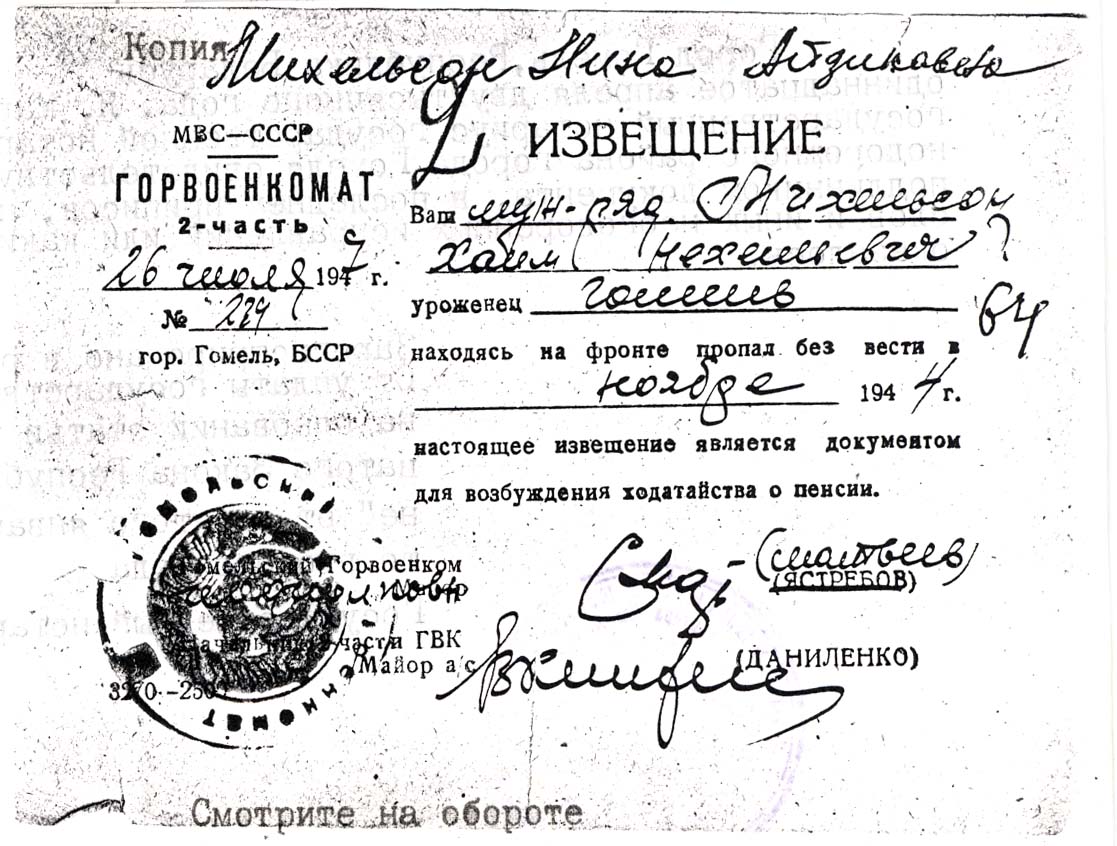 Копия Михельсон Нина Айзиковна
2
МВС—СССР
ГОРВОЕНКОМАТ
2-часть
26 июля 1947 г.
№ 224
гор. Гомель, БССР
ИЗВЕЩЕНИЕ
Ваш муж-ряд. Михельсон
Хаим
уроженец
64
находясь на фронте пропал без вести в
ноябре 1944 г.
настоящее извещение является документом
для возбуждения ходатайства о пенсии.
Гомельский Горвоенком
(Матвеев)
(ЯСТРЕБОВ)
части ГВК
Майор а/с
(ДАНИЛЕНКО)
3270-250
Смотрите на обороте